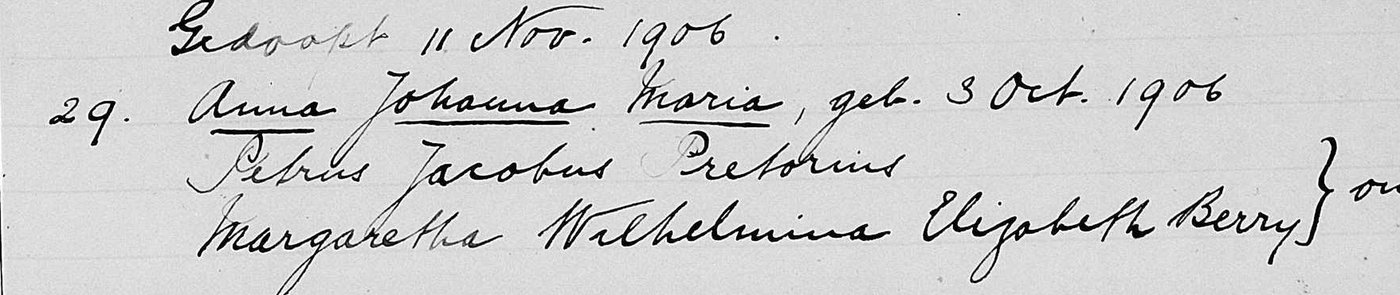 Gedoopt 11 Nov. 1906.
29. Anna Johanna Maria, geb. 3 Oct. 1906
Petrus Jacobus Pretorius
Margaretha Wilhelmina Elizabeth Berry } ou